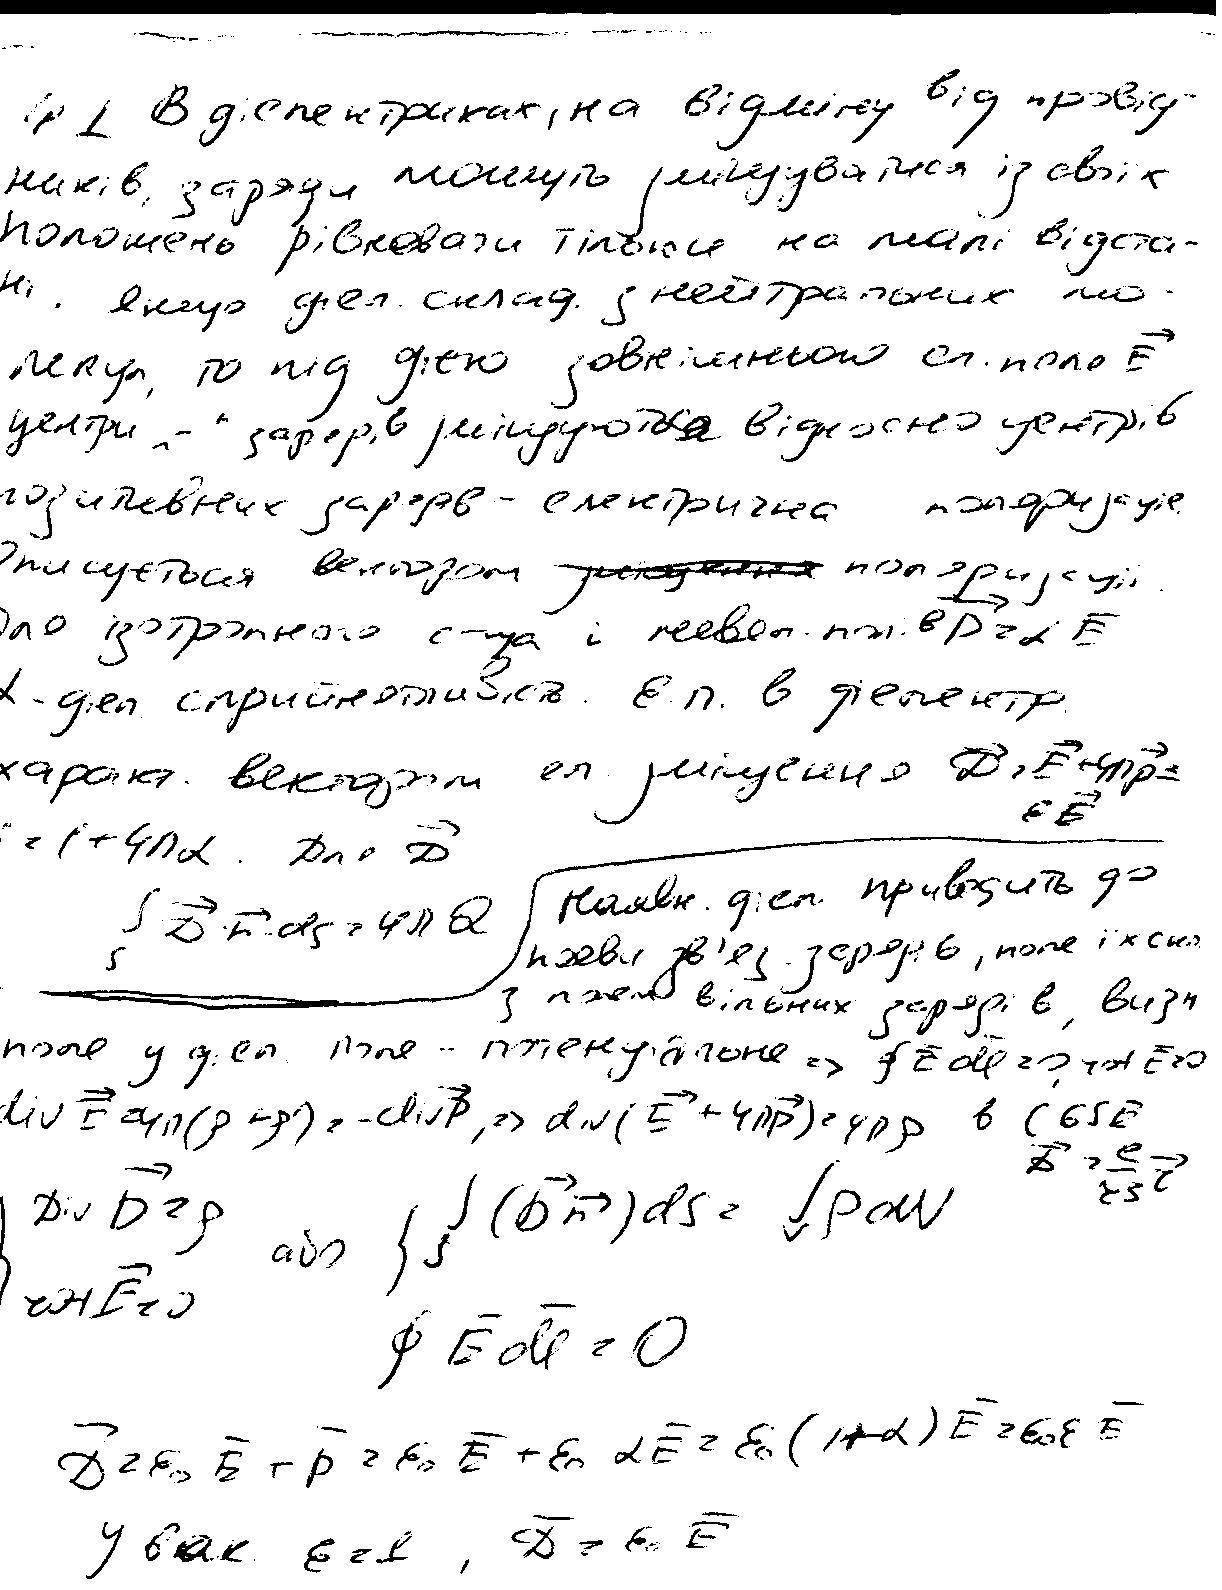 В діелектриках, на відміну від провід-
ників, заряди можуть зміщуватися із своїх
положень рівноваги тільки на малі відста-
ні. Якщо діел. склад. з нейтральних мо-
лекул, то під дією зовнішнього ел. поля E⃗
центри „-“ зарядів зміщуються відносно центрів
позитивних зарядів - електрична поляризація.
Описується вектором поляризації.
Для ізотропного с-ща і невел. пол. в P⃗ = α E⃗
α - діел. сприйнятливість. Е.п. в діелектр.
характ. вектором ел. зміщення D⃗ = E⃗ + 4πp⃗ =
εE⃗
= 1 + 4πα. Для D⃗
∫ D⃗·n⃗·ds = 4πQ
S
Наявн. діел. приводить до
появи зв'яз. зарядів, поле їх скл.
з полем вільних зарядів, визн
поле у діел. Поле - потенціальне => ∮ E⃗ dl⃗ = 0, rot E⃗ = 0
div E⃗ = 4π(ρ + ρ') = -div P⃗, => div(E⃗ + 4πp⃗) = 4πρ в СГSЕ
D⃗ = e/r³ r⃗
{ Div D⃗ = ρ
rot E⃗ = 0
або { ∫ (D⃗ n⃗) ds = ∫ ρ dV
S V
∮ E⃗ dl⃗ = 0
D⃗ = ε₀ E⃗ + p⃗ = ε₀ E⃗ + ε₀ αE⃗ = ε₀ (1+α) E⃗ = ε₀ε E⃗
У вак. ε = 1, D⃗ = ε₀ E⃗